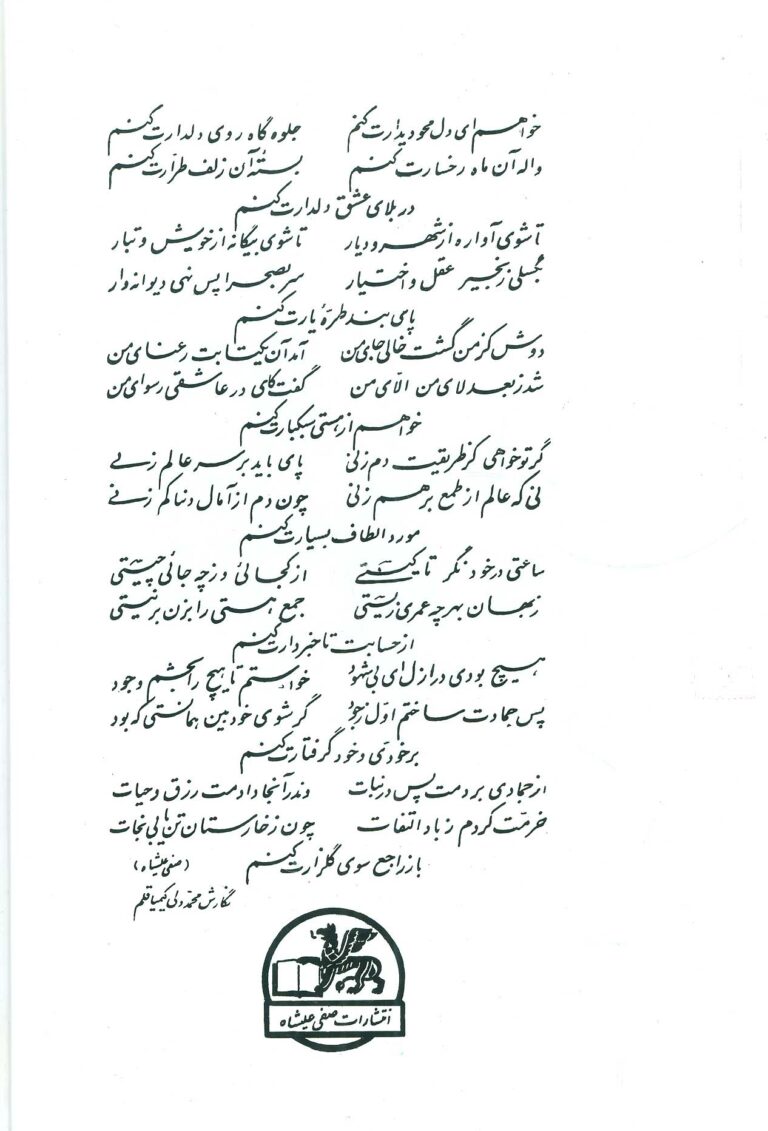 خواهم ای دل محو دیدارت کنم جلوه گاه روی دلدارت کنم
واله آن ماه رخسارت کنم بسته آن زلف طرّارت کنم
در بلای عشق دلدارت کنم
تا شوی آواره از شهر و دیار تا شوی بیگانه از خویش و تبار
بگسلی زنجیر عقل و اختیار سر بصحرا پس نهی دیوانه وار
پای بند طرّهٔ یارت کنم
دوش کز من گشت خالی جای من آمد آن یکتا بت رعنای من
شد ز بعد لای من الّای من گفت کای در عاشقی رسوای من
خواهم از هستی سبکبارت کنم
گر تو خواهی کز طریقت دم زنی پای باید بر سر عالم زنی
نی که عالم از طمع بر هم زنی چون دم از آمال دنیا کم زنی
مورد الطاف بسیارت کنم
ساعتی در خود نگر تا کیستی از کجائی وز چه جائی چیستی
در جهان بهر چه عمری زیستی جمع هستی را بزن بر نیستی
از حسابت تا خبردارت کنم
هیچ بودی در ازل ای بی شهود خواستم تا هیچ را بخشم وجود
پس جمادت ساختم اوّل ز جود گر شوی خودبین همانستی که بود
بر خودی خود گرفتارت کنم
از جمادی بردمت پس در نبات وندر آنجا دادمت رزق و حیات
خرمّت کردم ز باد التفات چون ز خارستان تن یابی نجات
باز راجع سوی گلزارت کنم (صفی علیشاه)
نگارش محمّد ولی کیمیا قلم
انتشارات صفی علیشاه